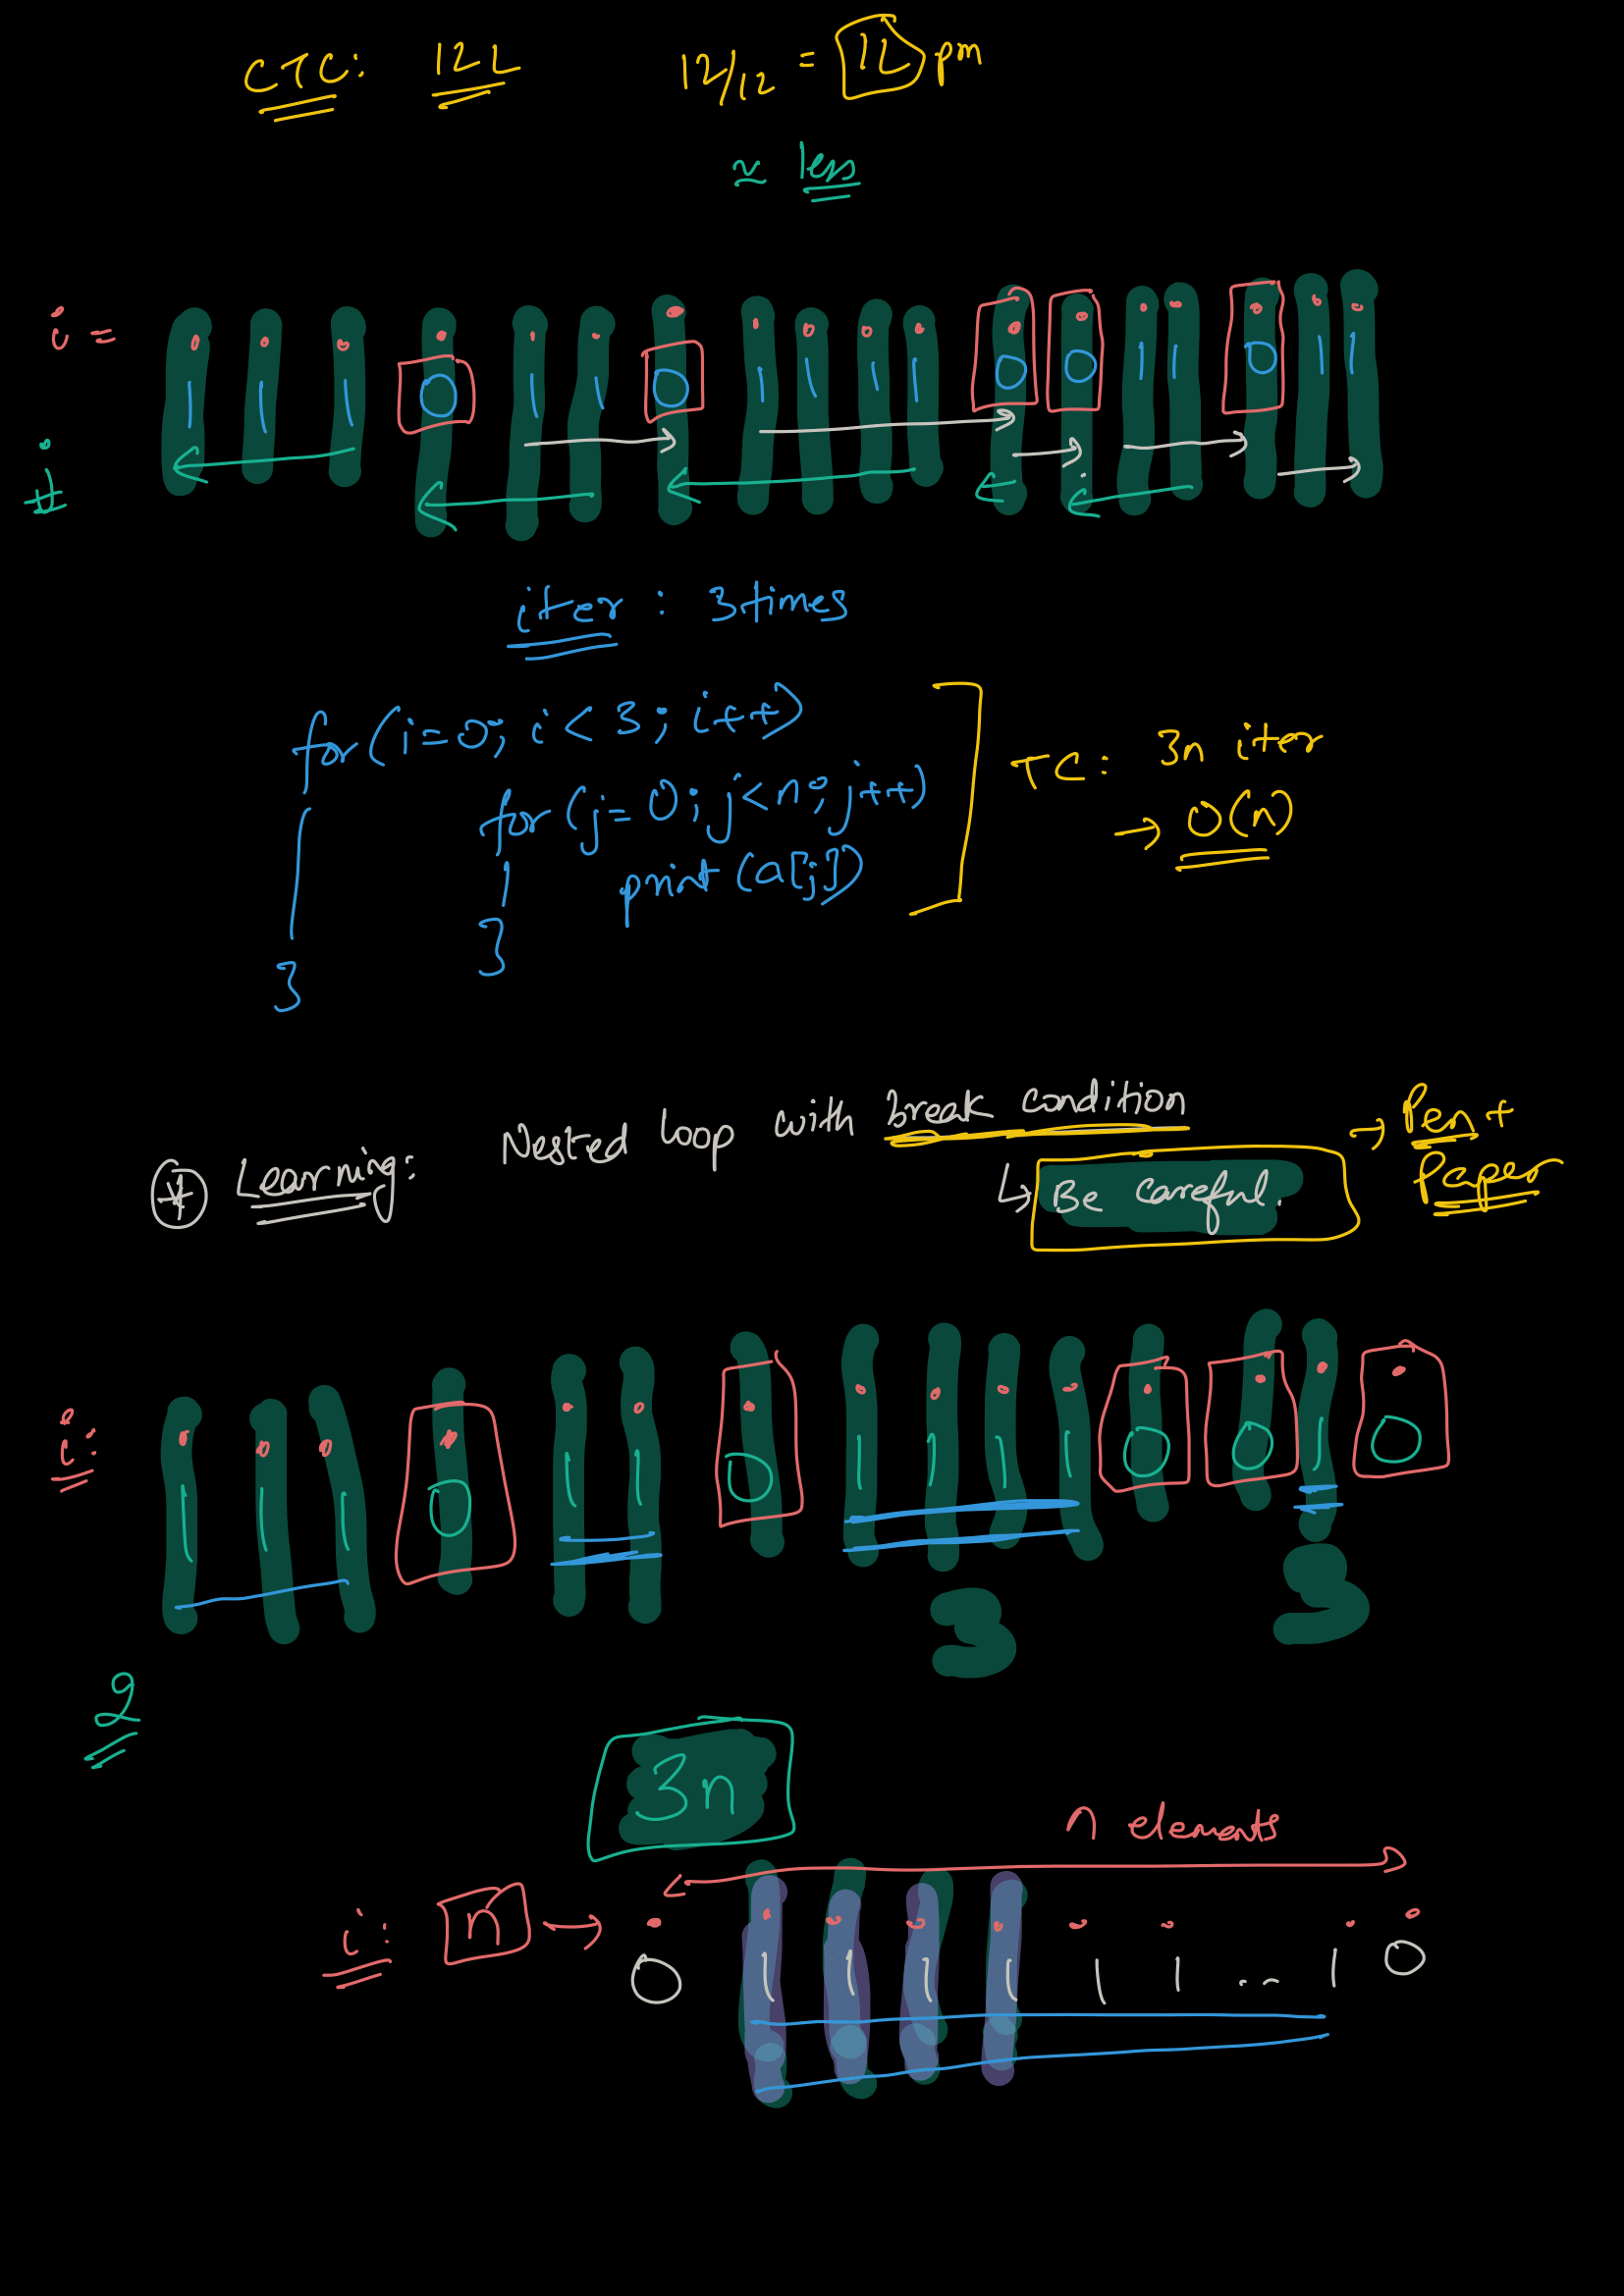 CTC: 12L 12/12 = 1L pm
≈ less
i =
1 1 1 0 1 1 0 1 1 1 1 0 0 1 1 0 1 1
j
iter : 3 times
for (i=0; i<3; i++)
for (j=0; j<n; j++)
print (a[j])
}
}
TC: 3n iter
→ O(n)
* Learning: Nested loop with break condition
↳ Be careful.
→ Pen +
Paper
i:
1 1 1 0 1 1 0 1 1 1 1 0 0 1 0
3 3
2
3n
n elements
i: n →
0 1 1 1 1 1 1 .. 1 0